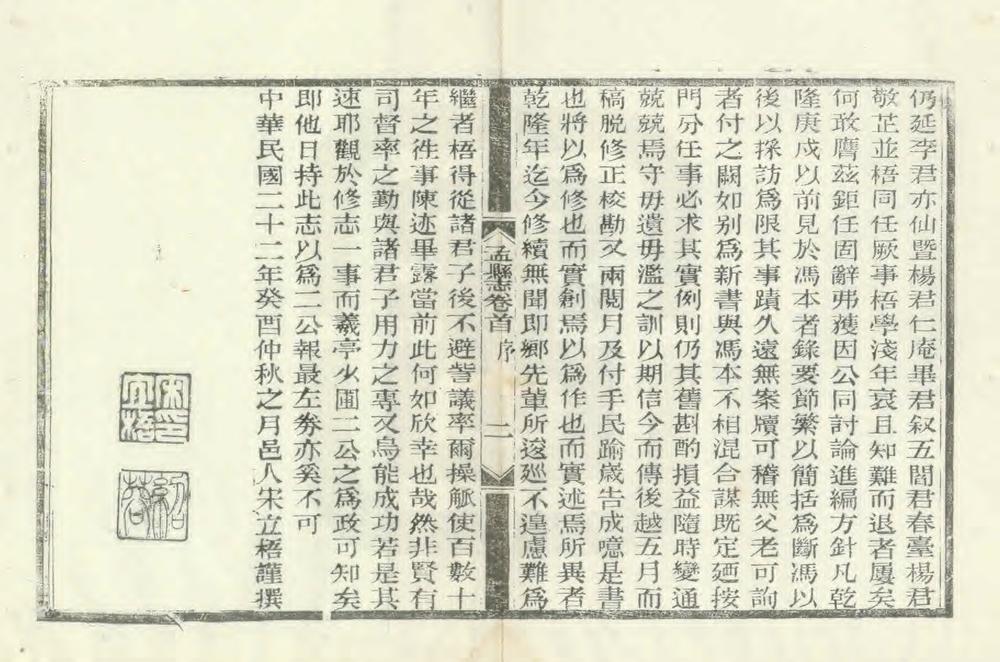 仍延李君亦仙暨楊君仁庵畢君叙五閻君春臺楊君
敬芷並梧同任厥事梧學淺年衰且知難而退者屢矣
何敢膺兹鉅任固辭弗獲因公同討論進編方針凡乾
隆庚戍以前見於馮本者錄要節繁以簡括爲斷馮以
後以採訪爲限其事蹟久遠無案牘可稽無父老可詢
者付之闕如别爲新書與馮本不相混合謀既定廼按
門分任事必求其實例則仍其舊斟酌損益隨時變通
兢兢焉守毋遺毋濫之訓以期信今而傳後越五月而
稿脱修正校勘又兩閲月及付手民踰歲告成噫是書
也將以爲修也而實創焉以爲作也而實述焉所異者
乾隆年迄今修續無聞即鄉先輩所逡廵不遑慮難爲
孟縣志卷首 序 二
繼者梧得從諸君子後不避訾議率爾操觚使百數十
年之徃事陳迹畢露當前此何如欣幸也哉然非賢有
司督率之勤與諸君子用力之專又烏能成功若是其
速耶觀於修志一事而羲亭少圃二公之爲政可知矣
即他日持此志以爲二公報最左劵亦奚不可
中華民國二十二年癸酉仲秋之月邑人宋立梧謹撰